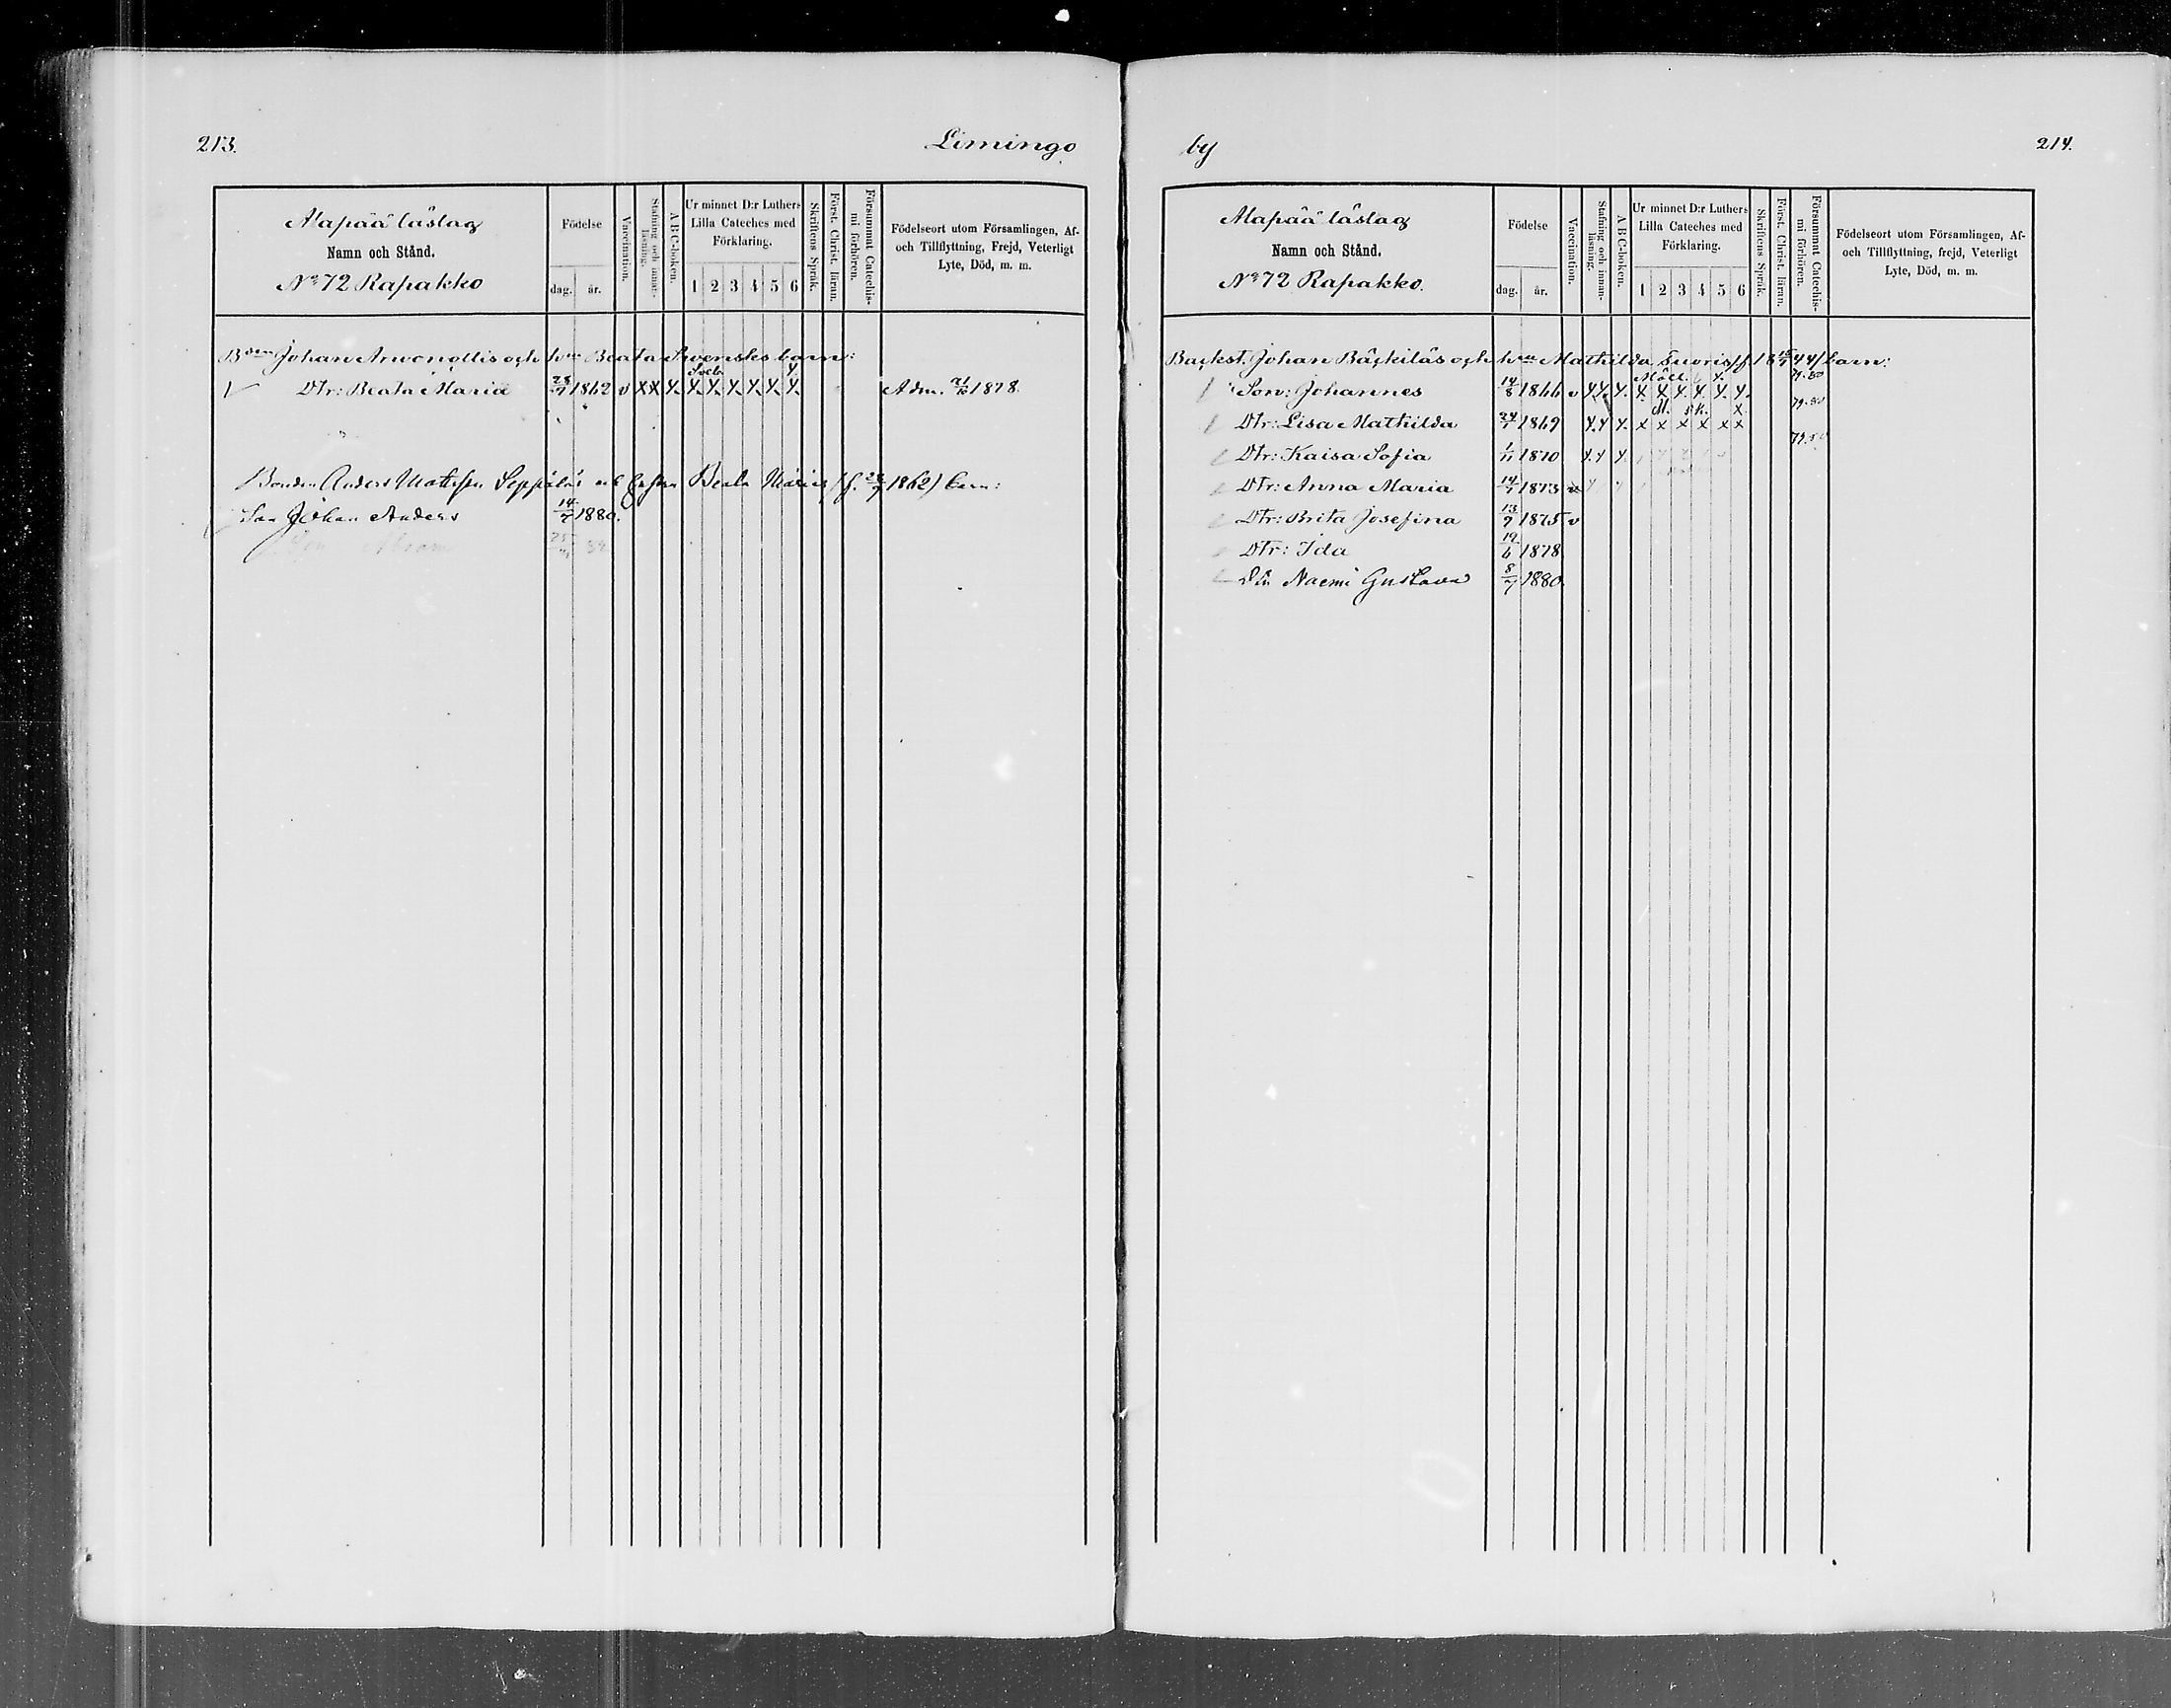 213.
Limingo
Alapää läslag
Namn och Stånd.
No 72 Rapakko
Födelse
dag. år.
Vaccination.
Stafning och innan-läsning.
A B C-boken.
Ur minnet D:r Luthers Lilla Cateches med Förklaring.
1 2 3 4 5 6
Skriftens Språk.
Först. Christ. läran.
Försummat Catechis-mi förhören.
Födelseort utom Församlingen, Af- och Tillflyttning, Frejd, Veterligt Lyte, Död, m. m.
Johan och hun Beata barn:
Dtr: Beata Maria 28/9 1862 v x x x x x x x x x Adm. 1878.
Bonden Anders Seppäläs och Beata Maria (f. 28/9 1862) barn:
Son Johan Anders 14/7 1880.
by
214.
Alapää läslag
Namn och Stånd.
No 72 Rapakko.
Födelse
dag. år.
Vaccination.
Stafning och innan-läsning.
A B C-boken.
Ur minnet D:r Luthers Lilla Cateches med Förklaring.
1 2 3 4 5 6
Skriftens Språk.
Först. Christ. läran.
Försummat Catechis-mi förhören.
Födelseort utom Församlingen, Af- och Tillflyttning, frejd, Veterligt Lyte, Död, m. m.
Backst. Johan Bäckiläs och hun Mathilda Suoris 44/barn:
Son: Johannes 14/8 1866 v x x x x x x x x x 79.80
Dtr: Lisa Mathilda 24/7 1869 x x x x x x x x x 79.80
Dtr: Kaisa Sofia 1/11 1870 x x x
Dtr: Anna Maria 14/7 1873
Dtr: Brita Josefina 13/9 1875 v
Dtr: Ida 19/6 1878
Dtr Naemi Gustava 8/7 1880.